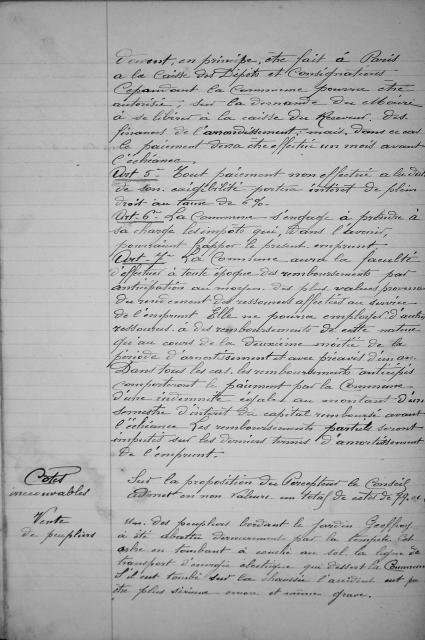 devront, en principe, être fait à Paris
à la Caisse des Dépôts et Consignations
Cependant la Commune pourra être
autorisée, sur la demande du Maire
à se libérer à la caisse du Receveur des
finances de l'arrondissement; mais, dans ce cas
le paiement devra être effectué un mois avant
l'échéance.
Art 5° Tout paiement non effectué à la date
de son exigibilité portera intérêt de plein
droit au taux de 6 %.
Art. 6° La Commune s'engage à prendre à
sa charge les impôts qui, dans l'avenir,
pourraient frapper le présent emprunt
Art. 7° La Commune aura la faculté
d'effectuer à toute époque des remboursements par
anticipation au moyen des plus values provenant
du rendement des ressources affectées au service
de l'emprunt. Elle ne pourra employer d'autres
ressources à des remboursements de cette nature
qu'au cours de la deuxième moitié de la
période d'amortissement et avec préavis d'un an.
Dans tous les cas, les remboursements anticipés
comporteront le paiement par la Commune
d'une indemnité égale au montant d'un
semestre d'intérêt du capital remboursé avant
l'échéance. Les remboursements partiels seront
imputés sur les derniers termes d'amortissement
de l'emprunt.
Cotes
irrecouvrables
Sur la proposition du Percepteur le Conseil
admet en non valeurs un total de cotes de
Vente
de peupliers
Un des peupliers bordant le jardin Geoffroy
a été abattu dernièrement par la tempête. Cet
arbre en tombant a couché au sol la ligne de
transport d'énergie électrique qui dessert la Commune
S'il eut tombé sur la chaussée l'accident eut pu
être plus sérieux encore et même grave.